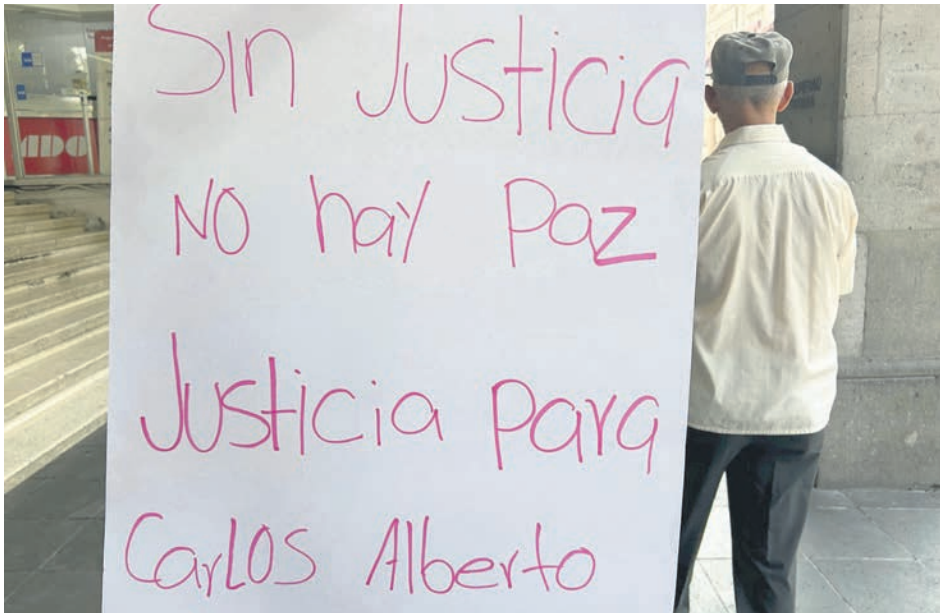 Sin Justicia
NO hay Paz
Justicia para
CarLOS Alberto
ADO